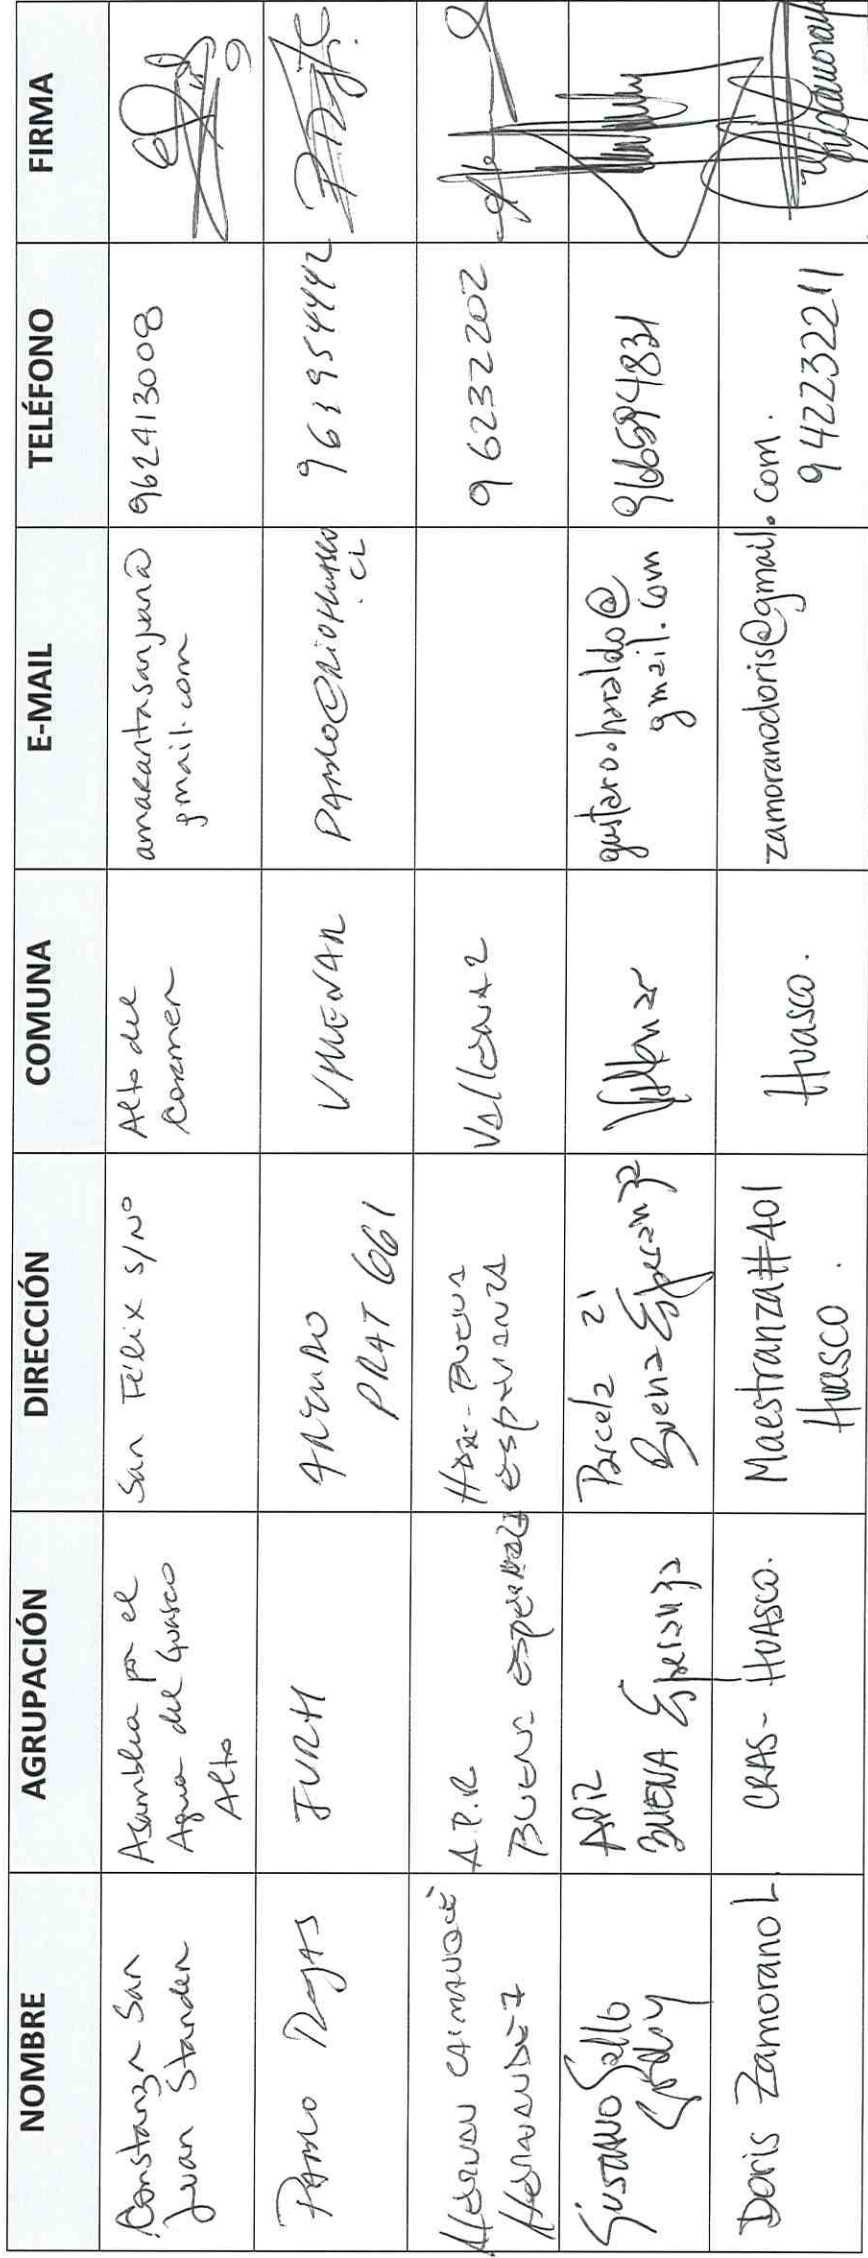 NOMBRE
AGRUPACIÓN
DIRECCIÓN
COMUNA
E-MAIL
TELÉFONO
FIRMA
Constanza San
Juan Standen
Asamblea por el
Agua del Guasco
Alto
San Félix s/Nº
Alto del
Carmen
amarantasanjuan@
gmail.com
962413008
Pablo Rojas
JVRH
ARTURO
PRAT 661
VALLENAR
PABLO@RIOHUASCO
.CL
961954442
A.P.R
BUENA ESPERANZA
Hda - Buena
Esperanza
Vallenar
96232202
GUSTAVO
APR
BUENA Esperanza
Parcela 21
Buena Esperanza
Vallenar
gustavo.haraldo@
gmail.com
966594831
Doris Zamorano L
CRAS- HUASCO.
Maestranza #401
Huasco.
Huasco.
zamoranodoris@gmail.com.
942232211